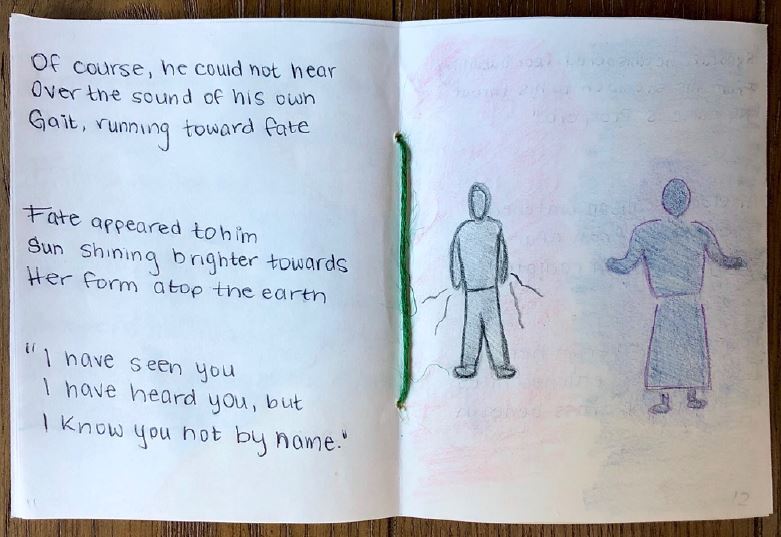 Of course, he could not hear
Over the sound of his own
Gait, running toward fate
Fate appeared to him
Sun shining brighter towards
Her form atop the earth
"I have seen you
I have heard you, but
I know you not by name."
11
12